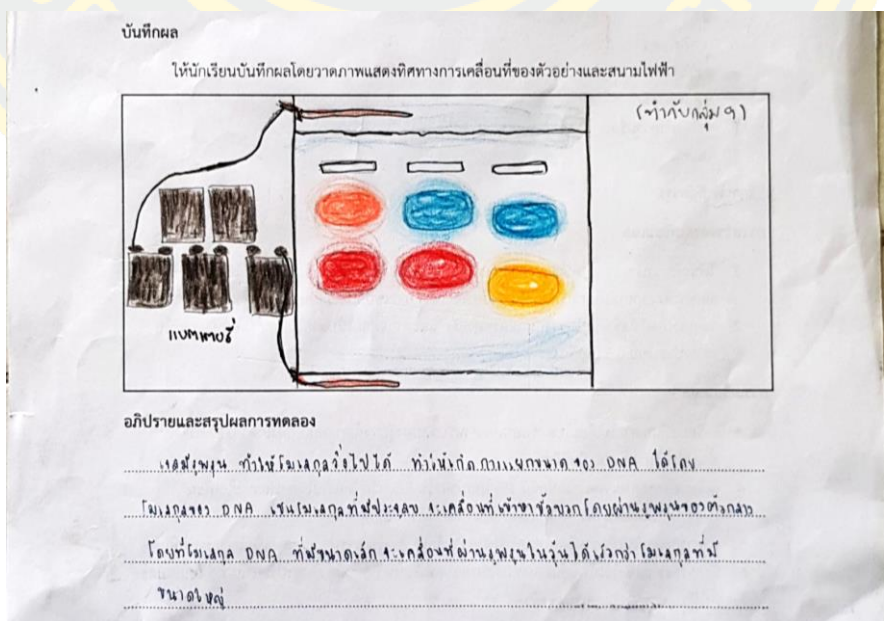 บันทึกผล
ให้นักเรียนบันทึกผลโดยวาดภาพแสดงทิศทางการเคลื่อนที่ของตัวอย่างและสนามไฟฟ้า
(ทำกับกลุ่ม 9)
แบตเตอรี่
อภิปรายและสรุปผลการทดลอง
เจลมีรูพรุน ทำให้โมเลกุลวิ่งไปได้ ทำให้เกิดการแยกขนาดของ DNA ได้โดย
โมเลกุลของ DNA เป็นโมเลกุลที่มีประจุลบ จะเคลื่อนที่เข้าหาขั้วบวกโดยผ่านรูพรุนของตัวกลาง
โดยที่โมเลกุล DNA ที่มีขนาดเล็ก จะเคลื่อนที่ผ่านรูพรุนในวุ้นได้เร็วกว่าโมเลกุลที่มี
ขนาดใหญ่